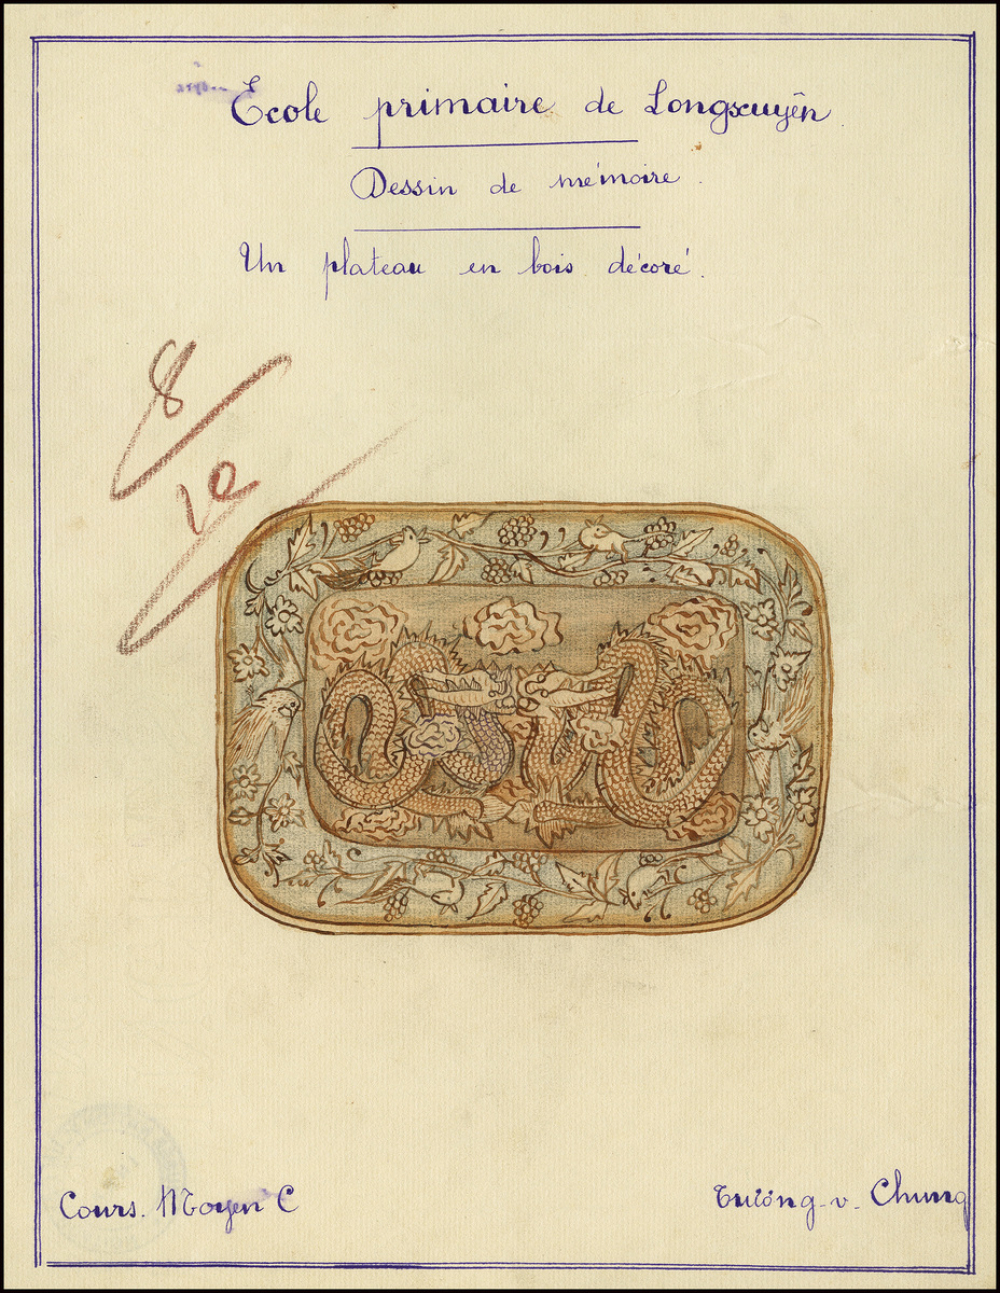 Ecole primaire de Longxuyên
Dessin de mémoire.
Un plateau en bois décoré.
8
10
Cours. Moyen C
Trương-v-Chung